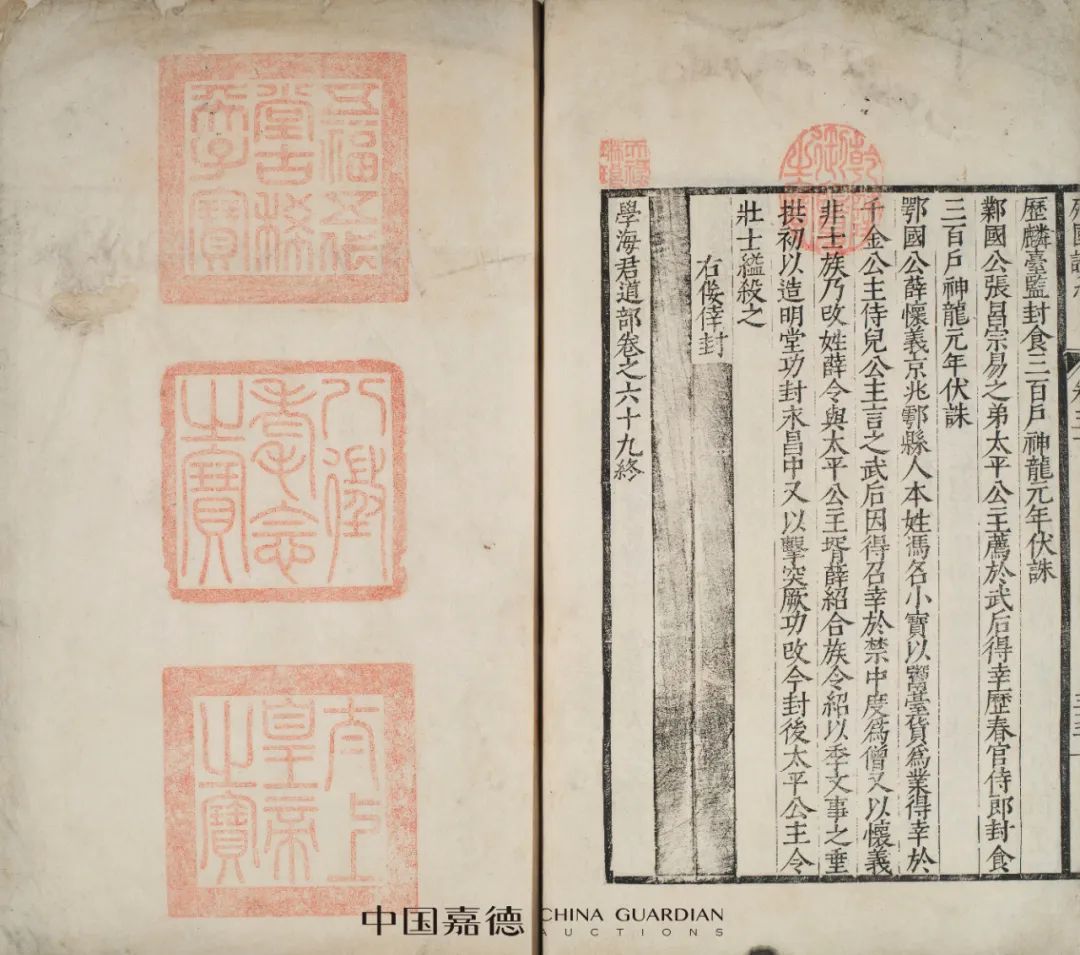 乾隆御覽之寶
天祿琳琅
歷麟臺監封食三百戶神龍元年伏誅
鄴國公張昌宗易之弟太平公主薦於武后得幸歷春官侍郎封食
三百戶神龍元年伏誅
鄂國公薛懷義京兆鄠縣人本姓馮名小寶以鬻臺貨為業得幸於
千金公主侍兒公主言之武后因得召幸於禁中度為僧又以懷義
非士族乃改姓薛令與太平公主壻薛紹合族令紹以季父事之垂
拱初以造明堂功封永昌中又以擊突厥功改今封後太平公主令
壯士縊殺之
右佞倖封
學海君道部卷之六十九終
五福五代
堂古稀
天子寶
八徵
耄念
之寶
太上
皇帝
之寶
中国嘉德 CHINA GUARDIAN
AUCTIONS